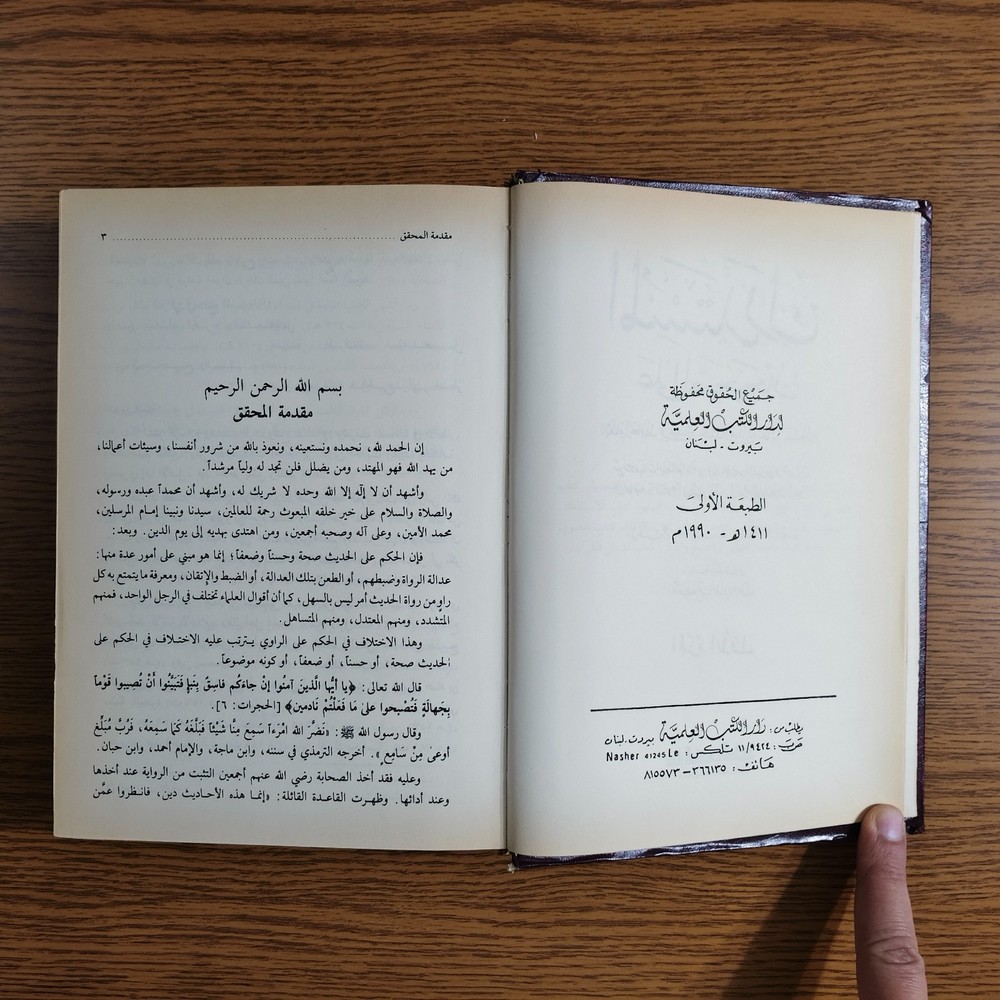 جميع الحقوق محفوظة
لدار الكتب العلمية
بيروت - لبنان
الطبعة الأولى
١٤١١هـ - ١٩٩٠م
يطلب من: دار الكتب العلمية بيروت. لبنان
ص.ب: ١١/٩٤٢٤ تلكس: Nasher 41245 Le
هاتف: ٣٦٦١٣٥ - ٨١٥٥٧٣
مقدمة المحقق ........................ ٣
بسم الله الرحمن الرحيم
مقدمة المحقق
إن الحمد لله، نحمده ونستعينه، ونعوذ بالله من شرور أنفسنا، وسيئات أعمالنا،
من يهد الله فهو المهتد، ومن يضلل فلن تجد له ولياً مرشداً.
وأشهد أن لا إلٰه إلا الله وحده لا شريك له، وأشهد أن محمداً عبده ورسوله،
والصلاة والسلام على خير خلقه المبعوث رحمة للعالمين، سيدنا ونبينا إمام المرسلين،
محمد الأمين، وعلى آله وصحبه أجمعين، ومن اهتدى بهديه إلى يوم الدين. وبعد:
فإن الحكم على الحديث صحة وحسناً وضعفاً؛ إنما هو مبني على أمور عدة منها:
عدالة الرواة وضبطهم، أو الطعن بتلك العدالة، أو الضبط والإتقان، ومعرفة ما يتمتع به كل
راوٍ من رواة الحديث أمر ليس بالسهل، كما أن أقوال العلماء تختلف في الرجل الواحد، فمنهم
المتشدد، ومنهم المعتدل، ومنهم المتساهل.
وهذا الاختلاف في الحكم على الراوي يترتب عليه الاختلاف في الحكم على
الحديث صحة، أو حسناً، أو ضعفاً، أو كونه موضوعاً.
قال الله تعالى: ﴿يا أيُّها الَّذينَ آمنُوا إنْ جاءَكُم فاسِقٌ بِنَبإٍ فَتَبَيَّنُوا أنْ تُصِيبوا قَوْماً
بِجَهالَةٍ فَتُصْبحوا على مَا فَعَلْتُمْ نَادمين﴾ [الحجرات: ٦].
وقال رسول الله ﷺ: «نَضَّرَ الله امْرَءاً سَمِعَ مِنَّا شَيْئاً فَبَلَّغَهُ كَمَا سَمِعَهُ، فَرُبَّ مُبَلَّغٍ
أوعىٰ مِنْ سَامِعٍ». أخرجه الترمذي في سننه، وابن ماجة، والإمام أحمد، وابن حبان.
وعليه فقد أخذ الصحابة رضي الله عنهم أجمعين التثبت من الرواية عند أخذها
وعند أدائها. وظهرت القاعدة القائلة: «إنما هذه الأحاديث دين، فانظروا عمَّن